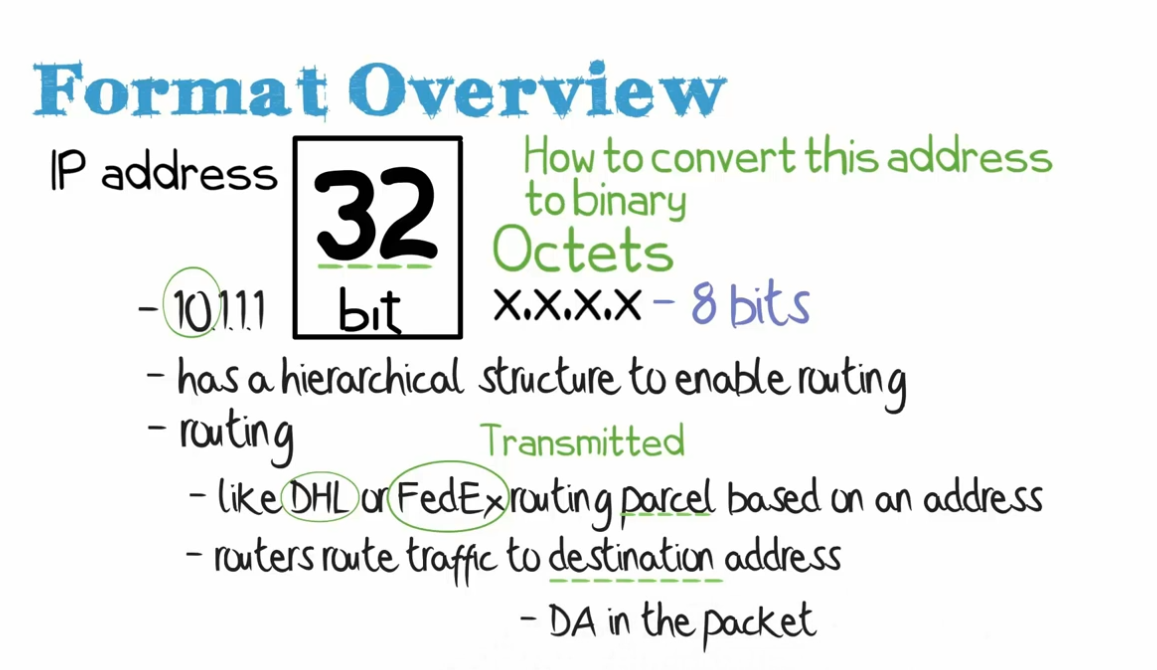 Format Overview
IP address
32
bit
How to convert this address
to binary
Octets
X.X.X.X - 8 bits
- 10.1.1.1
- has a hierarchical structure to enable routing
- routing
Transmitted
- like DHL or FedEx routing parcel based on an address
- routers route traffic to destination address
- DA in the packet